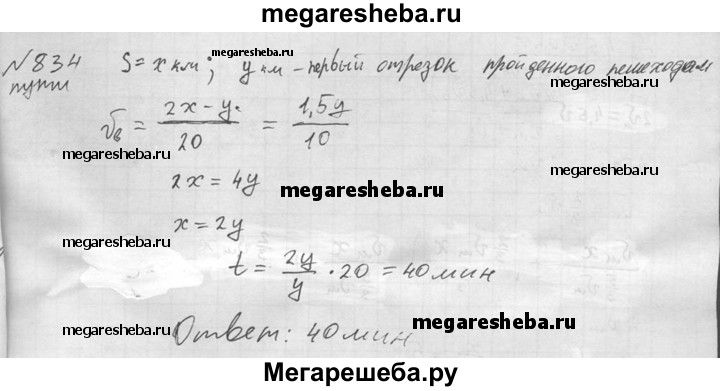 megaresheba.ru
№834 S = x км; y км - первый отрезок пройденного пешеходом
megaresheba.ru
пути
v_в = (2x - y)/20 = 1,5y/10
megaresheba.ru megaresheba.ru
2x = 4y
megaresheba.ru megaresheba.ru
x = 2y
megaresheba.ru
t = 2y/y · 20 = 40 мин
megaresheba.ru
Ответ: 40 мин
megaresheba.ru megaresheba.ru
Мегарешеба.ру